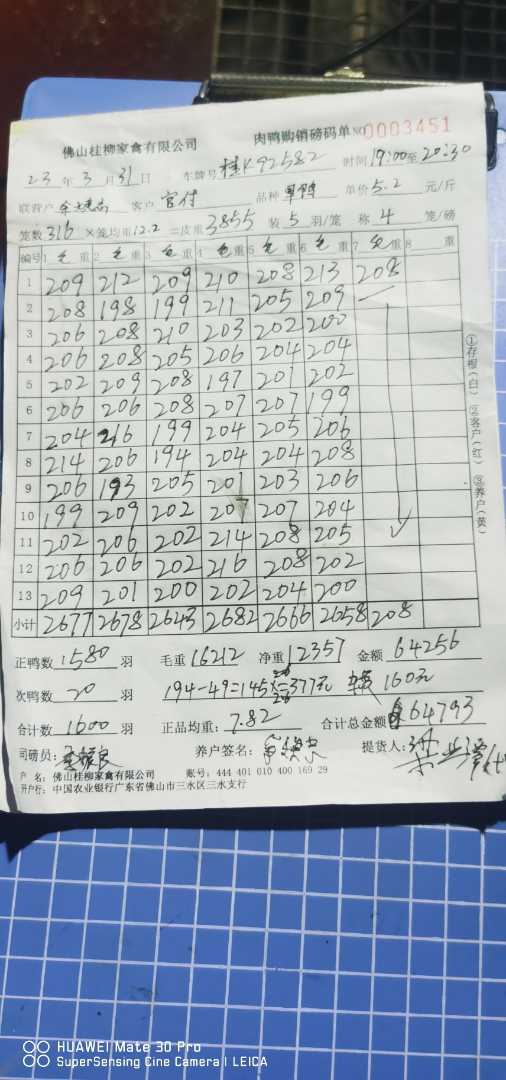 佛山桂柳家禽有限公司 肉鸭购销磅码单 NO 0003451
23 年 3 月 31 日 车牌号 桂K92582 时间 19:00 至 20:30
联营户 客户 官付 品种 单价 5.2 元/斤
笼数 316 ×笼均重 12.2 =皮重 3855 装 5 羽/笼 称 4 笼/磅
编号 1 毛 重 2 毛 重 3 毛 重 4 毛 重 5 毛 重 6 毛 重 7 毛 重 8 重
1 209 212 209 210 208 213 208
2 208 198 199 211 205 209
3 206 208 210 203 202 200
4 206 208 205 206 204 204
5 202 209 208 197 201 202
6 206 206 208 207 207 199
7 204 216 199 204 205 206
8 214 206 194 204 204 208
9 206 193 205 201 203 206
10 199 209 202 207 204
11 202 206 202 214 208 205
12 206 206 202 216 208 202
13 209 201 200 202 204 200
小计 2677 2678 2643 2682 2666 2658 208
①存根(白) ②客户(红) ③养户(黄)
正鸭数 1580 羽 毛重 16212 净重 12357 金额 64256
次鸭数 20 羽 194-49=145 =377元 160元
合计数 1600 羽 正品均重: 7.82 合计总金额 64793
司磅员: 养户签名: 提货人:
户 名: 佛山桂柳家禽有限公司 账号: 444 401 010 400 169 29
开户行: 中国农业银行广东省佛山市三水区三水支行
HUAWEI Mate 30 Pro
SuperSensing Cine Camera | LEICA